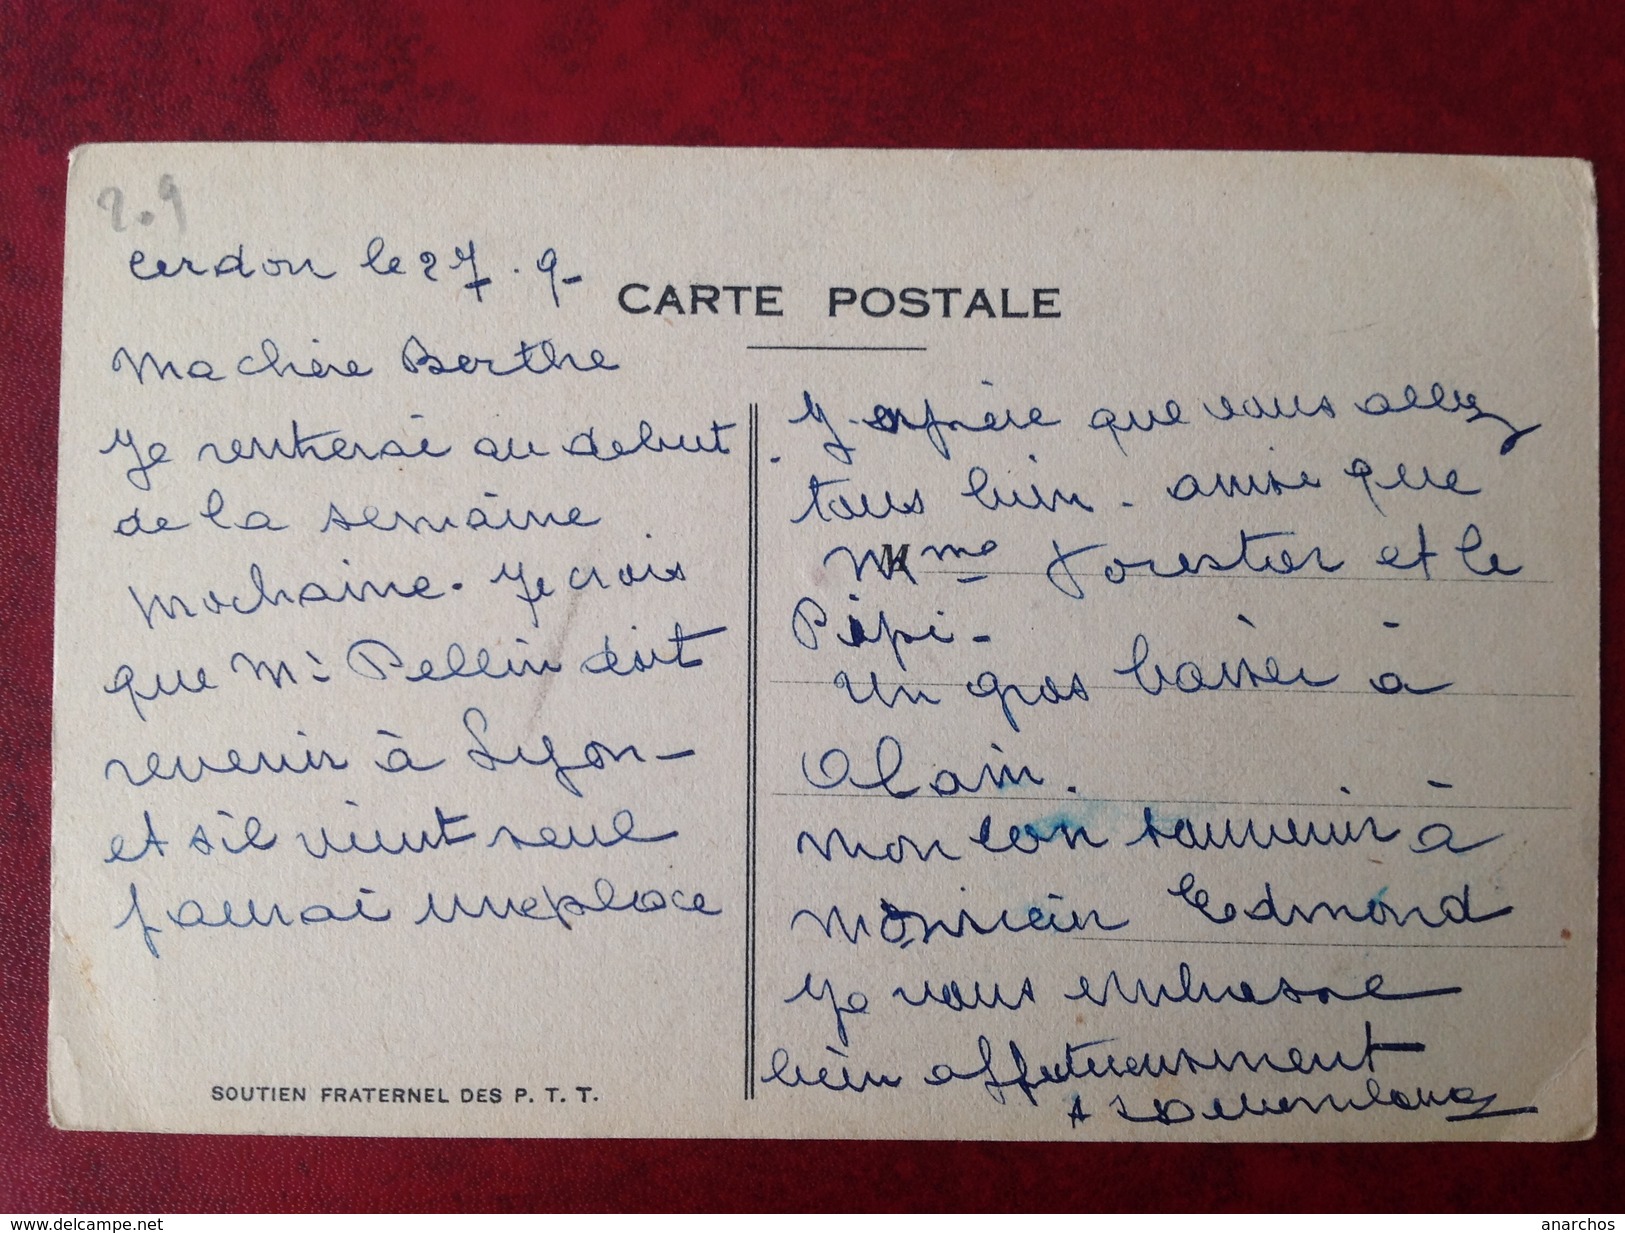 2.9
Cerdon le 27.9-
CARTE POSTALE
Ma chère Berthe
Je rentrerai au debut
de la semaine
prochaine. Je crois
que Mr Pellin doit
revenir à Lyon-
et s'il vient seul
j'aurai une place
SOUTIEN FRATERNEL DES P. T. T.
J'espère que vous allez
tous bien. ainsi que
Mme Forestier et le
Pépi-
Un gros baiser à
Alain.
mon bon souvenir à
Monsieur Edmond
Je vous embrasse
bien affectueusement
www.delcampe.net
anarchos